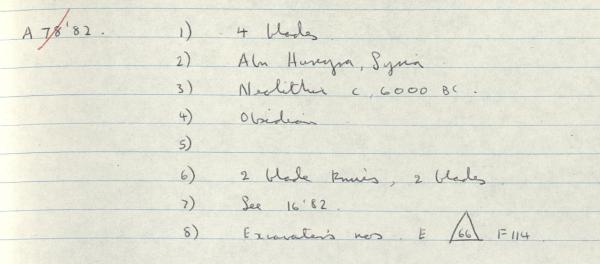 A 78'82. 1) 4 blades
2) Abu Hureyra, Syria
3) Neolithic c, 6000 BC.
4) Obsidian
5)
6) 2 blade knives, 2 blades
7) See 16'82.
8) Excavator's nos. E 66 F114